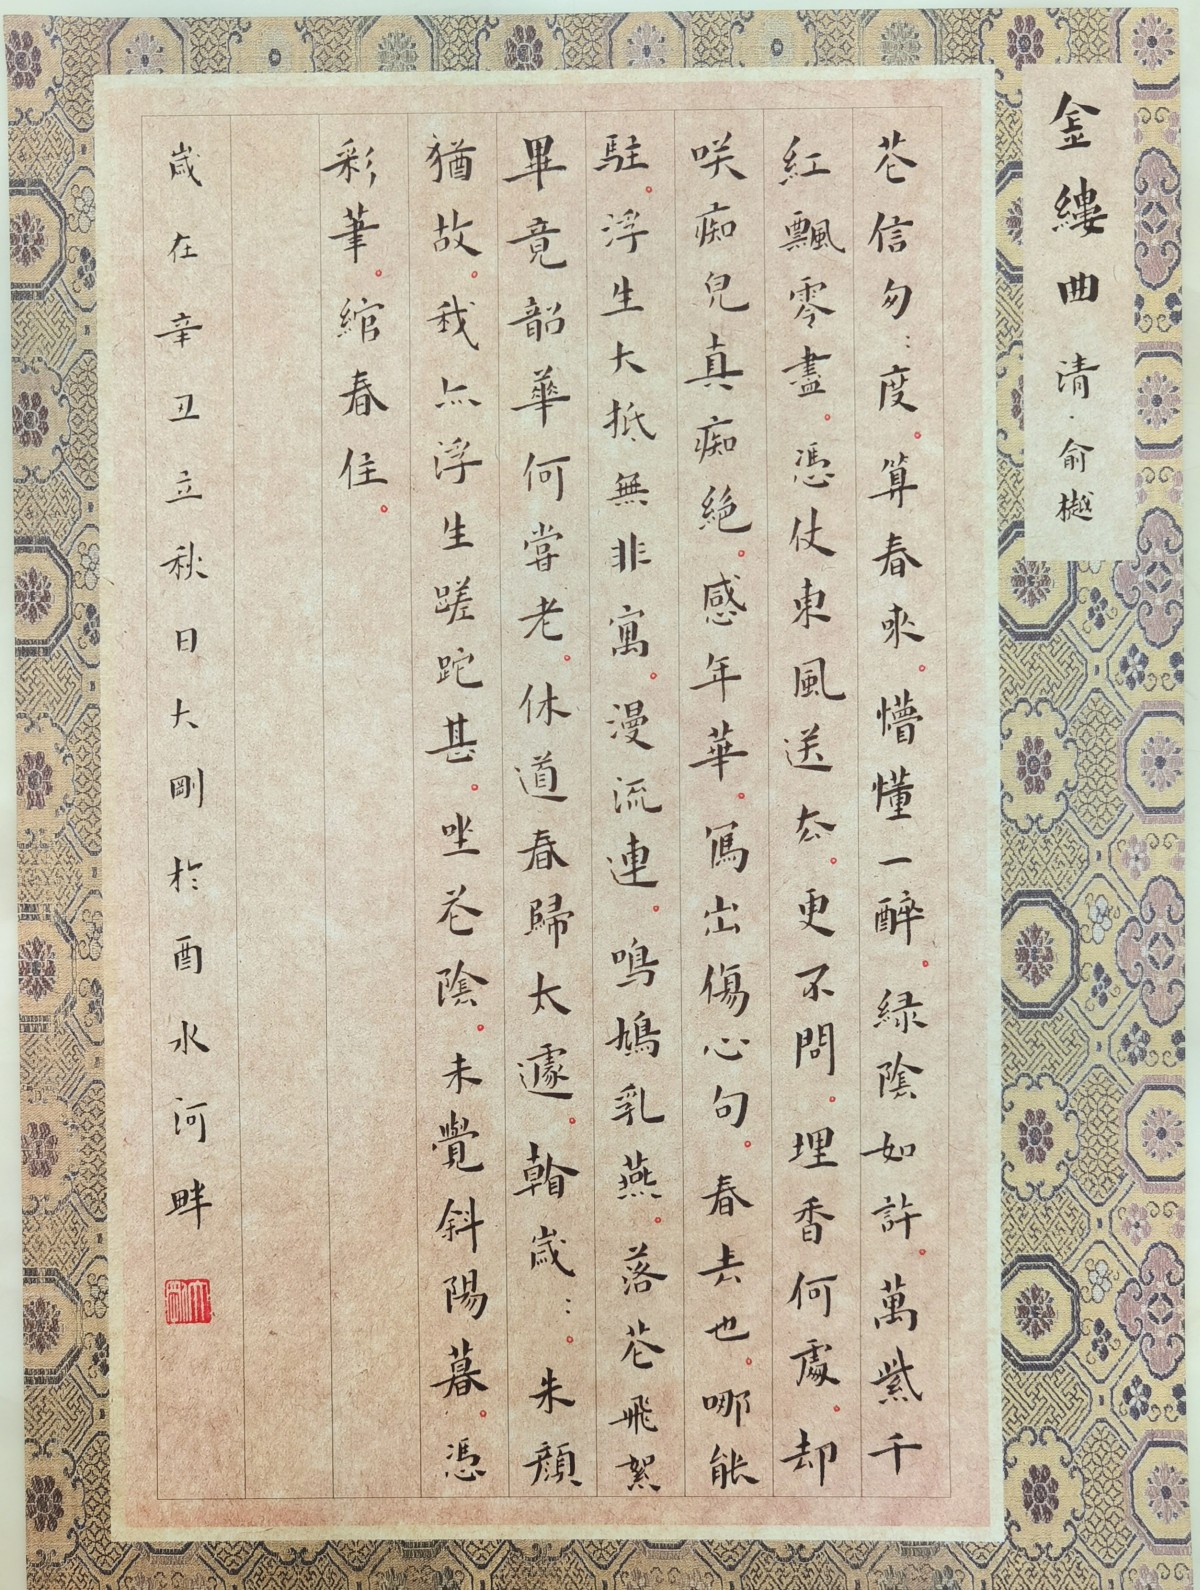 金縷曲 清·俞樾
花信匆：度。算春來。懵懂一醉。緑陰如許。萬紫千
紅飄零盡。慿仗東風送去。更不問。埋香何處。却
咲痴兒真痴絕。感年華。寫出傷心句。春去也。哪能
駐。浮生大抵無非寓。漫流連。鳴鳩乳燕。落花飛絮
畢竟韶華何嘗老。休道春歸太遽。看歲：。朱顔
猶故。我亦浮生蹉跎甚。坐花陰。未覺斜陽暮。慿
彩筆。綰春住。
歲在辛丑立秋日大剛於酉水河畔